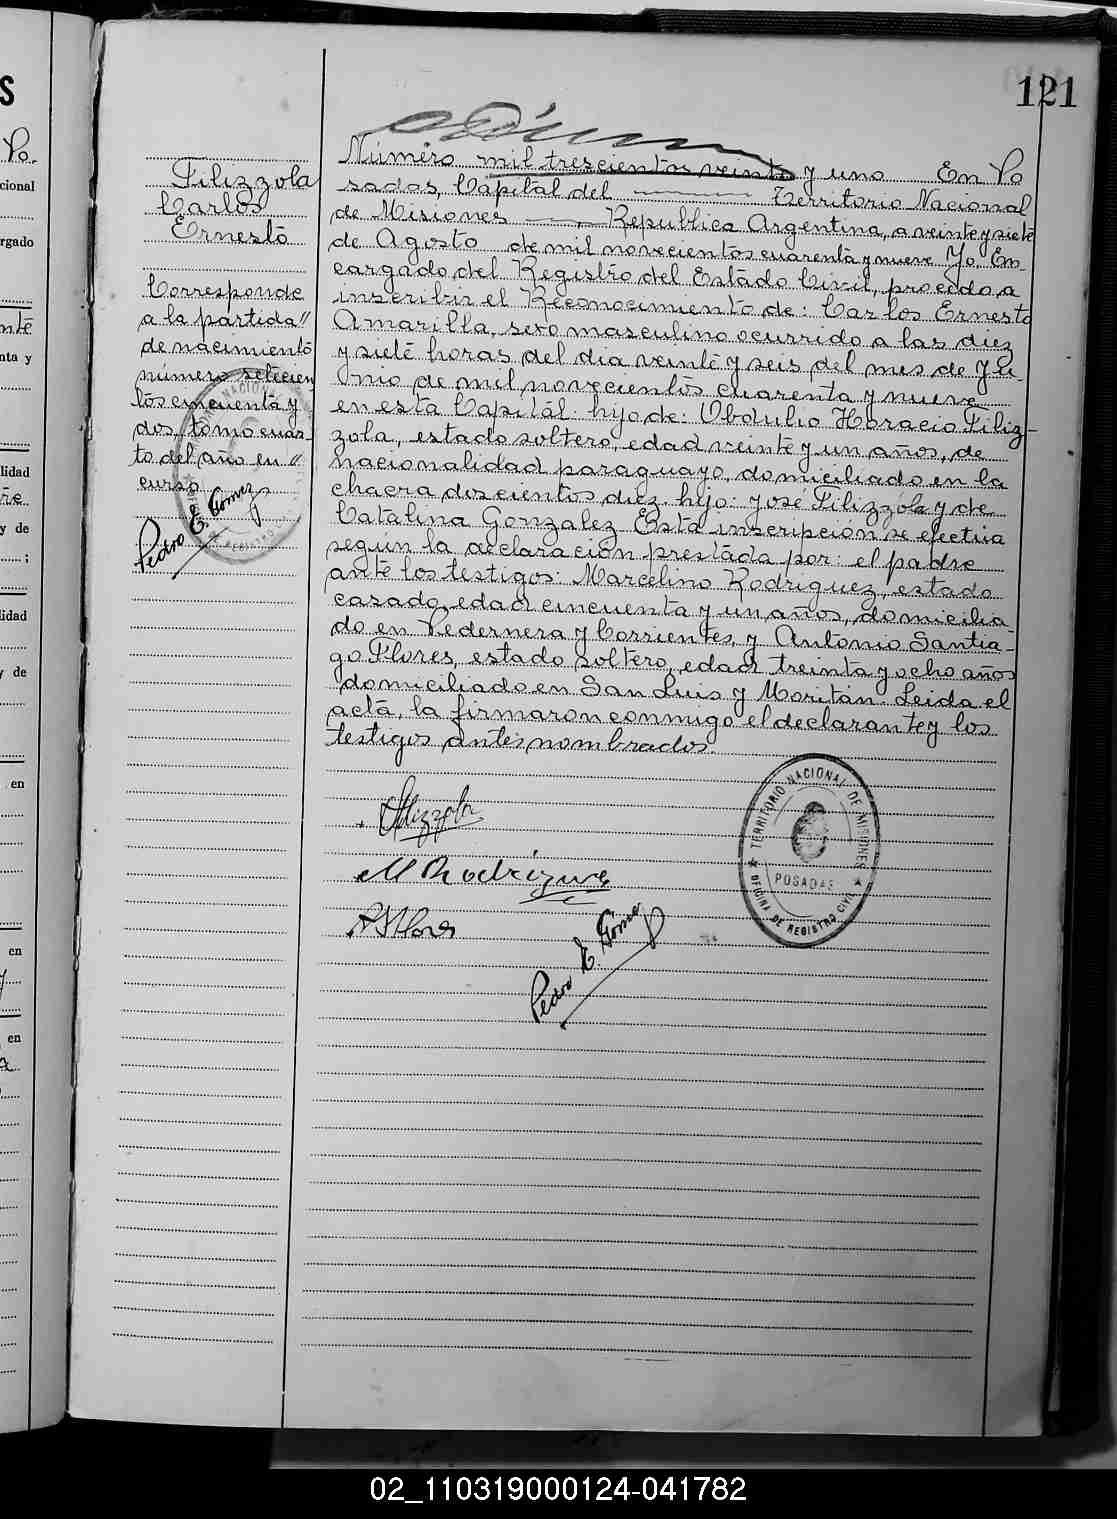 121
Filizzola
Carlos
Ernesto
Corresponde
a la partida //
de nacimiento
número setecien
tos cincuenta y
dos, tomo cuar-
to del año en //
curso
Pedro E. Gómez
Número mil trescientos veinte y uno En Po
sadas, Capital del Territorio Nacional
de Misiones, República Argentina, a veinte y siete
de Agosto de mil novecientos cuarenta y nueve Yo, En-
cargado del Registro del Estado Civil, procedo a
inscribir el Reconocimiento de: Carlos Ernesto
Amarilla, sexo masculino ocurrido a las diez
y siete horas del dia veinte y seis del mes de Ju-
nio de mil novecientos cuarenta y nueve
en esta Capital: hijo de: Obdulio Horacio Filiz-
zola, estado soltero, edad veinte y un años, de
nacionalidad paraguayo, domiciliado en la
chacra doscientos diez, hijo: José Filizzola y de
Catalina Gonzalez Esta inscripción se efectua
según la declaración prestada por: el padre
ante los testigos: Marcelino Rodriguez, estado
casado, edad cincuenta y un años, domicilia-
do en Pedernera y Corrientes, y Antonio Santia-
go Flores, estado soltero, edad treinta y ocho años
domiciliado en San Luis y Moritán. Leida el
acta, la firmaron conmigo el declarante y los
testigos antes nombrados.
Filizzola
M Rodríguez
A S Flores
Pedro E. Gómez
TERRITORIO NACIONAL DE MISIONES
POSADAS
OFICINA DE REGISTRO CIVIL
S
Po.
cional
rgado
nte
nta y
lidad
re
y de
;
lidad
y de
en
en
en
02_110319000124-041782